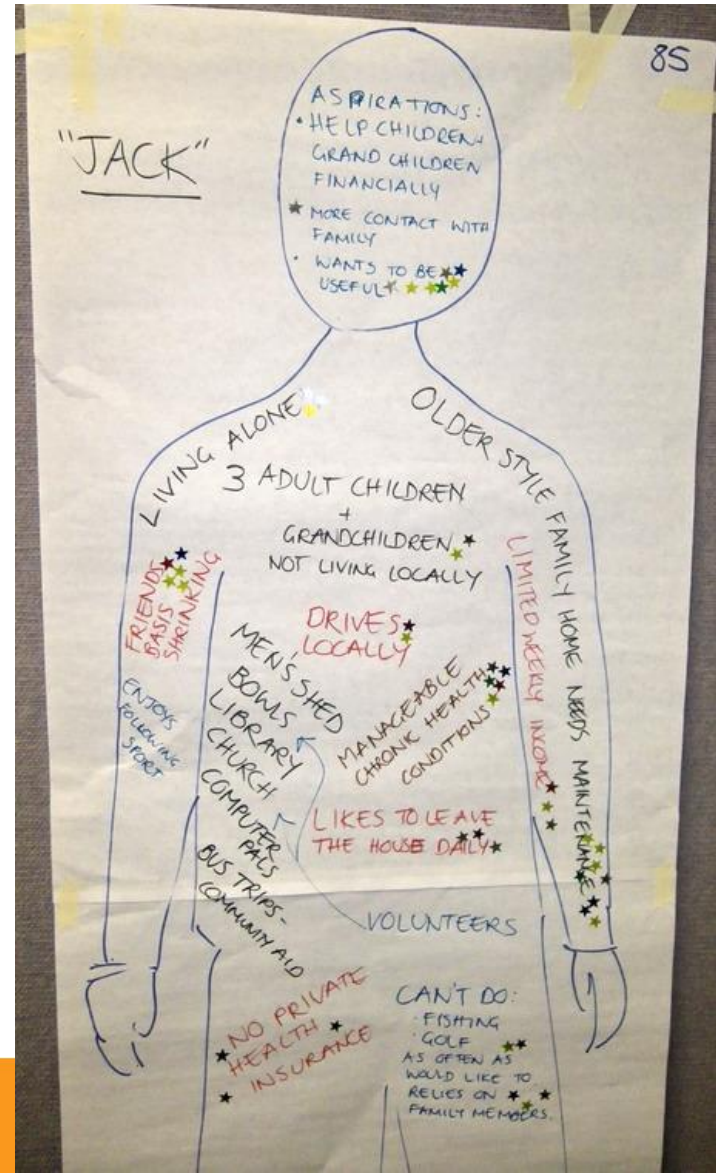 85
"JACK"
ASPIRATIONS:
• HELP CHILDREN +
GRAND CHILDREN
FINANCIALLY
MORE CONTACT WITH
FAMILY
• WANTS TO BE
USEFUL
LIVING ALONE
OLDER STYLE FAMILY HOME NEEDS MAINTENANCE
3 ADULT CHILDREN
+
GRANDCHILDREN
NOT LIVING LOCALLY
FRIENDS
BASIS
SHRINKING
DRIVES
LOCALLY
LIMITED WEEKLY INCOME
ENJOYS
FOLLOWING
SPORT
MEN'S SHED
BOWLS
LIBRARY
CHURCH
COMPUTER
PALS
BUS TRIPS -
COMMUNITY AID
MANAGEABLE
CHRONIC HEALTH
CONDITIONS
LIKES TO LEAVE
THE HOUSE DAILY
VOLUNTEERS
NO PRIVATE
HEALTH
INSURANCE
CAN'T DO:
• FISHING
• GOLF
AS OFTEN AS
WOULD LIKE TO
RELIES ON
FAMILY MEMBERS.